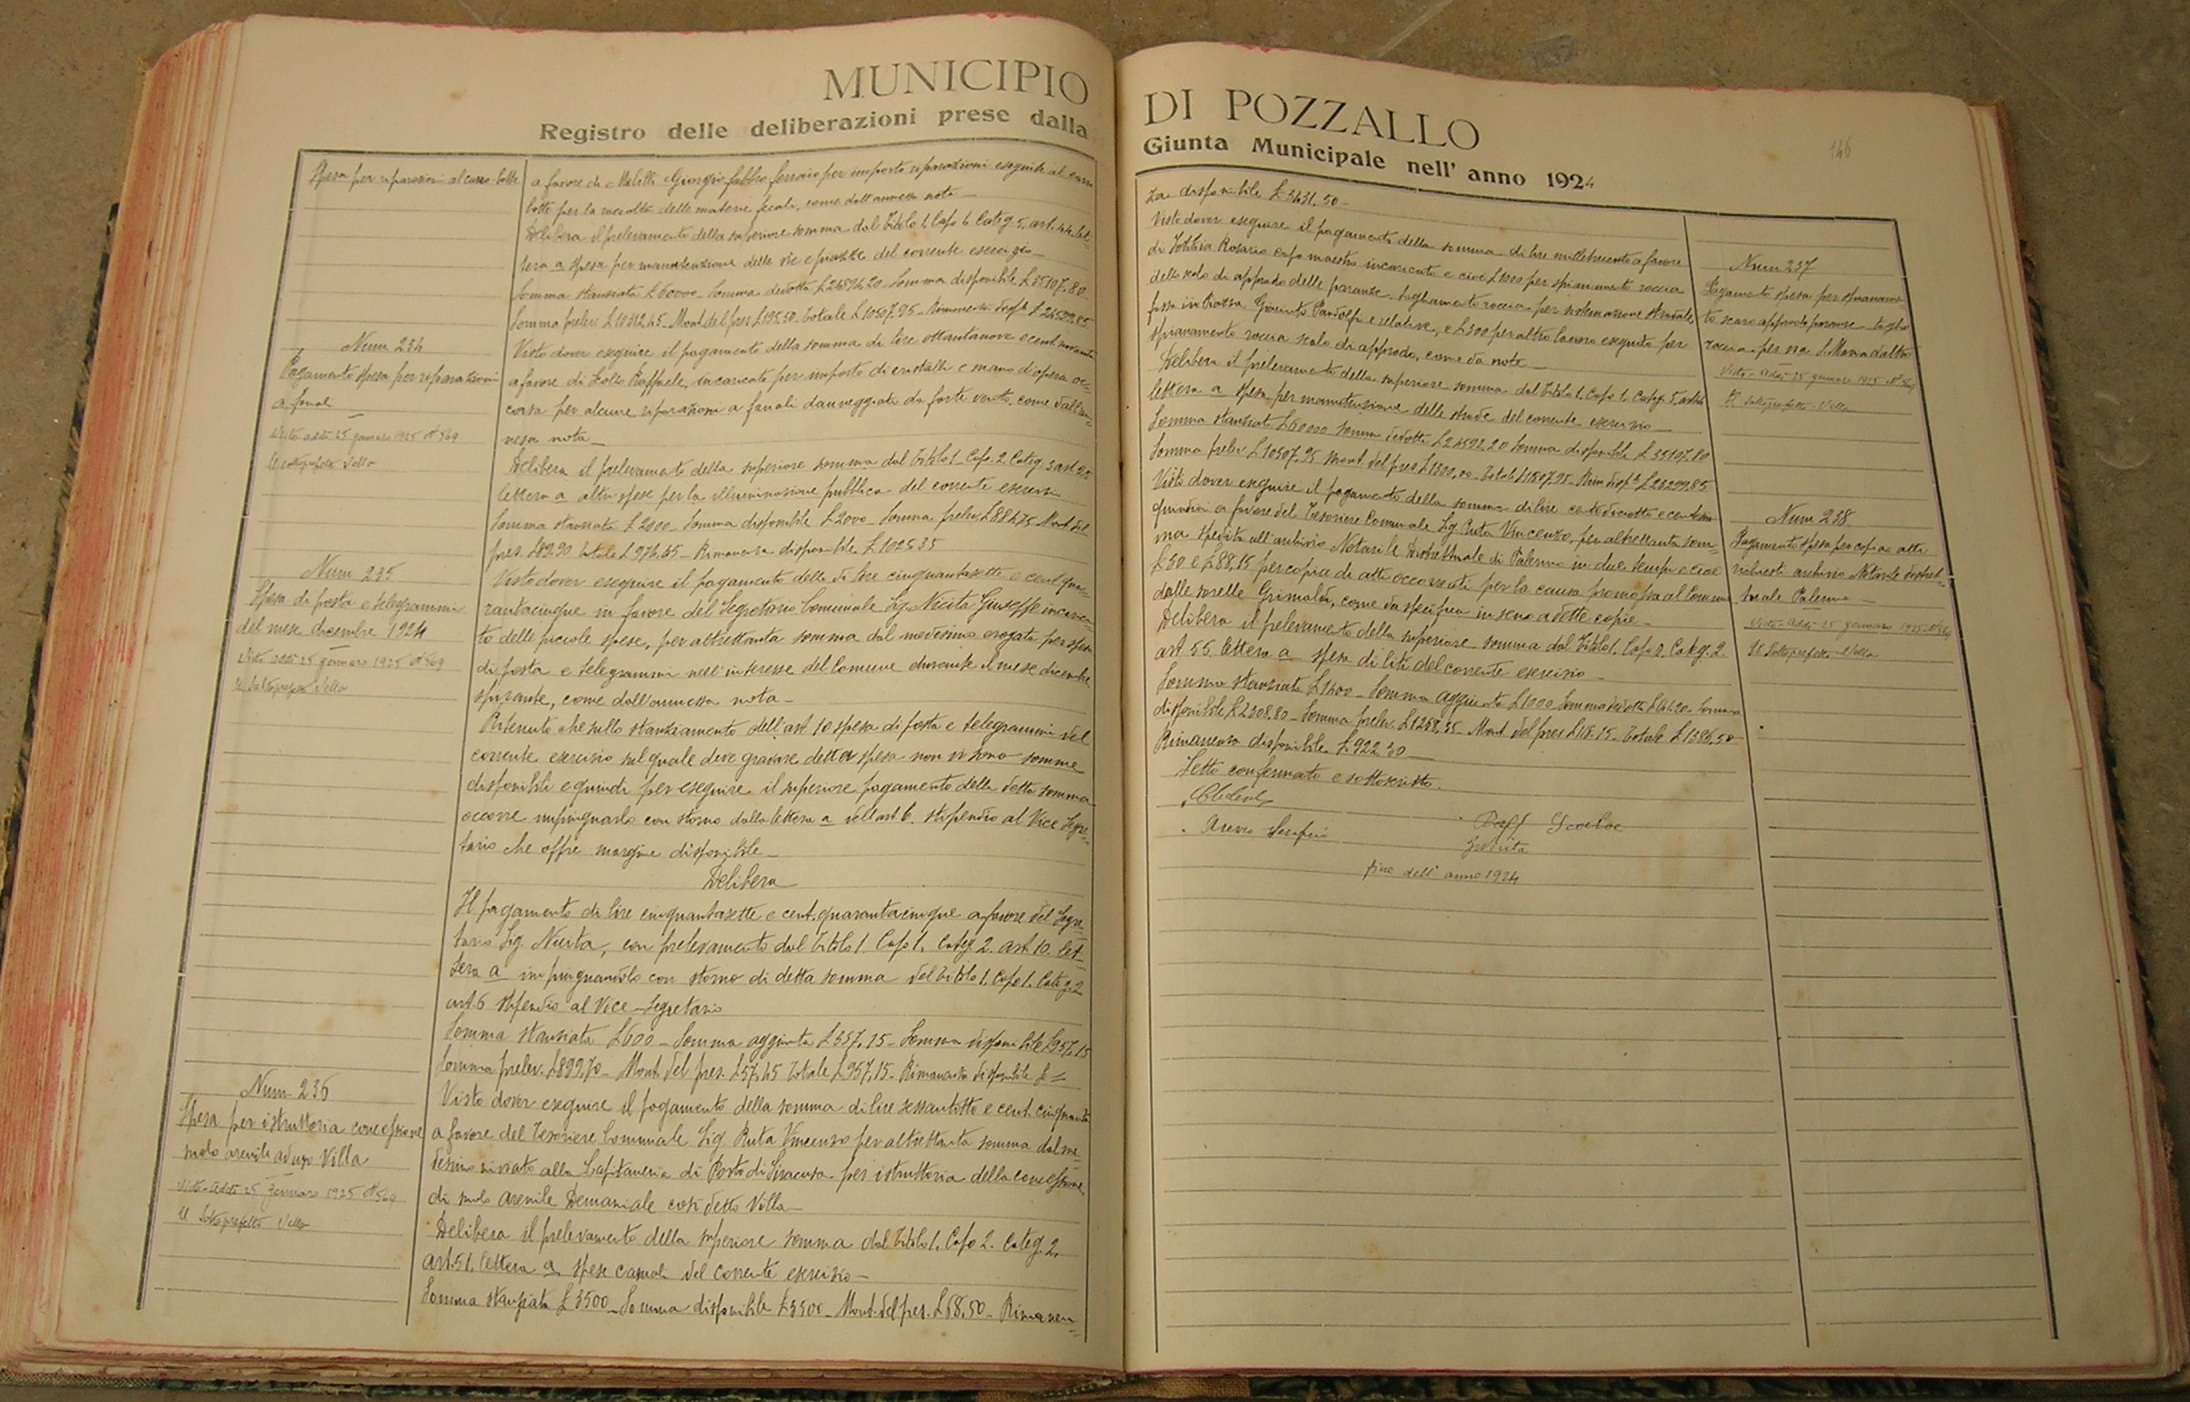 MUNICIPIO
Registro delle deliberazioni prese dalla
Spesa per riparazioni al carro-botte
a favore di Giorgio fabbro ferraio per importo riparazioni eseguite al carro
botte per la raccolta delle materie fecali, come dall'annessa nota
Delibera il prelevamento della superiore somma dal Titolo 1. Capo 1. Categ. 5. art. 44 let-
tera a spesa per manutenzione delle vie e piazze del corrente esercizio
Somma stanziata £ 60000 Somma dedotta Somma disponibile £ 35107.80
Somma prelev. £ 10312.45 Mont. del pres. £ 195.50 Totale £ 10507.95
Num 234
Pagamento spesa per riparazioni
a fanali
Visto addì 25 gennaio 1925 N° 569
Il sottoprefetto Vella
Visto dover eseguire il pagamento della somma di lire ottantanove e cent. novanta
a favore di Raffaele, incaricato per importo di cristalli e mano d'opera oc-
corsa per alcune riparazioni a fanali danneggiati da forte vento, come dall'an-
nessa nota
Delibera il prelevamento della superiore somma dal Titolo 1. Capo 2. Categ. 3 art 20
lettera a altre spese per la illuminazione pubblica del corrente esercizio
Somma stanziata £ 2000 Somma disponibile £ 2000 Somma prelev. £ 884.75 Mont. del
pres. £ 89.90 Totale £ 974.65 Rimanenza disponibile £ 1025.35
Num 235
Spesa di posta e telegrammi
del mese dicembre 1924
Visto addì 25 gennaio 1925 N° 569
Il Sottoprefetto Vella
Visto dover eseguire il pagamento delle di lire cinquantasette e cent. qua-
rantacinque in favore del Segretario Comunale Sig. Nicita Giuseppe incarica-
to delle piccole spese, per altrettanta somma dal medesimo erogata per spese
di posta e telegrammi nell'interesse del Comune durante il mese dicembre
spirante, come dall'annessa nota
Ritenuto che sullo stanziamento dell'art 10 spesa di posta e telegrammi del
corrente esercizio sul quale deve gravare detta spesa non vi sono somme
disponibili e quindi per eseguire il superiore pagamento della detta somma
occorre impinguarlo con storno dalla lettera a dell'art 6. stipendio al Vice Segre-
tario che offre margine disponibile
Delibera
Il pagamento di lire cinquantasette e cent. quarantacinque a favore del Segre-
tario Sig. Nicita, con prelevamento dal Titolo 1. Capo 1. Categ. 2. art 10. let-
tera a impinguandolo con storno di detta somma dal Titolo 1. Capo 1. Categ. 2
art 6 stipendio al Vice-Segretario
Somma stanziata £ 600 Somma aggiunta £ 357,15 Somma disponibile £ 957,15
Somma prelev. £ 899,70 Mont. del pres. £ 57,45 Totale £ 957,15 Rimanenza disponibile £ =
Num 236
Spesa per istruttoria concessione
suolo arenile ad uso Villa
Visto addì 25 gennaio 1925 N° 569
Il Sottoprefetto Vella
Visto dover eseguire il pagamento della somma di lire sessantotto e cent. cinquanta
a favore del Tesoriere Comunale Sig. Ruta Vincenzo per altrettanta somma dal me-
desimo inviato alla Capitaneria di Porto di Siracusa per istruttoria della concessione
di suolo arenile Demaniale così detto Villa
Delibera il prelevamento della superiore somma dal Titolo 1. Capo 2. Categ. 2.
art. 51. lettera a spese casuali del corrente esercizio
Somma stanziata £ 3500 Somma disponibile £ 3500 Mont. del pres. £ 68.50 Rimanen-
DI POZZALLO
Giunta Municipale nell' anno 1924
146
za disponibile £ 3431.50
Visto dover eseguire il pagamento della somma di lire milletrecento a favore
di Rosario capo maestro incaricato e cioè £ 1000 per spianamento roccia
dello scalo di approdo delle paranze, tagliamento roccia per sistemazione stradale,
Giacinto Pandolfi e relative, e £ 300 per altro lavoro eseguito per
spianamento roccia scalo di approdo, come da note
Delibera il prelevamento della superiore somma dal Titolo 1. Capo 1. Categ. 5. art 44
lettera a spesa per manutenzione delle strade del corrente esercizio
Somma stanziata £ 60000 Somma dedotta Somma disponibile £ 35107.80
Somma prelev. £ 10507.95 Mont. del pres. £ 1300,00 Totale £ 11807.95 Rim. disp. £ 23299.85
Num 237
Pagamento spesa per spianamen-
to scaro approdo paranze taglio
roccia per via S. Maria
Visto addì 25 gennaio 1925 N° 569
Il Sottoprefetto Vella
Visto dover eseguire il pagamento della somma di lire centodiciotto e centesimi
quindici a favore del Tesoriere Comunale Sig. Ruta Vincenzo, per altrettanta som-
ma spedita all'archivio Notarile Distrettuale di Palermo in due tempi e cioè
£ 30 e £ 88,15 per copia di atti occorrenti per la causa promossa al Comune
dalle sorelle Grimaldi, come da specifica in seno a dette copie
Delibera il prelevamento della superiore somma dal Titolo 1. Capo 2. Categ. 2.
art 55. lettera a spesa di liti del corrente esercizio
Somma stanziata £ Somma aggiunta £ 1000 Somma dedotta Somma
disponibile £ 2308.80 Somma prelev. £ 1268,35 Mont. del pres. £ 118.15 Totale £ 1386,50
Rimanenza disponibile £ 922.30
Num 238
Pagamento spesa per copia atti
richiesti archivio Notarile distret-
tuale Palermo
Visto addì 25 gennaio 1925 N° 569
Il Sottoprefetto Vella
Letto confermato e sottoscritto
fine dell'anno 1924